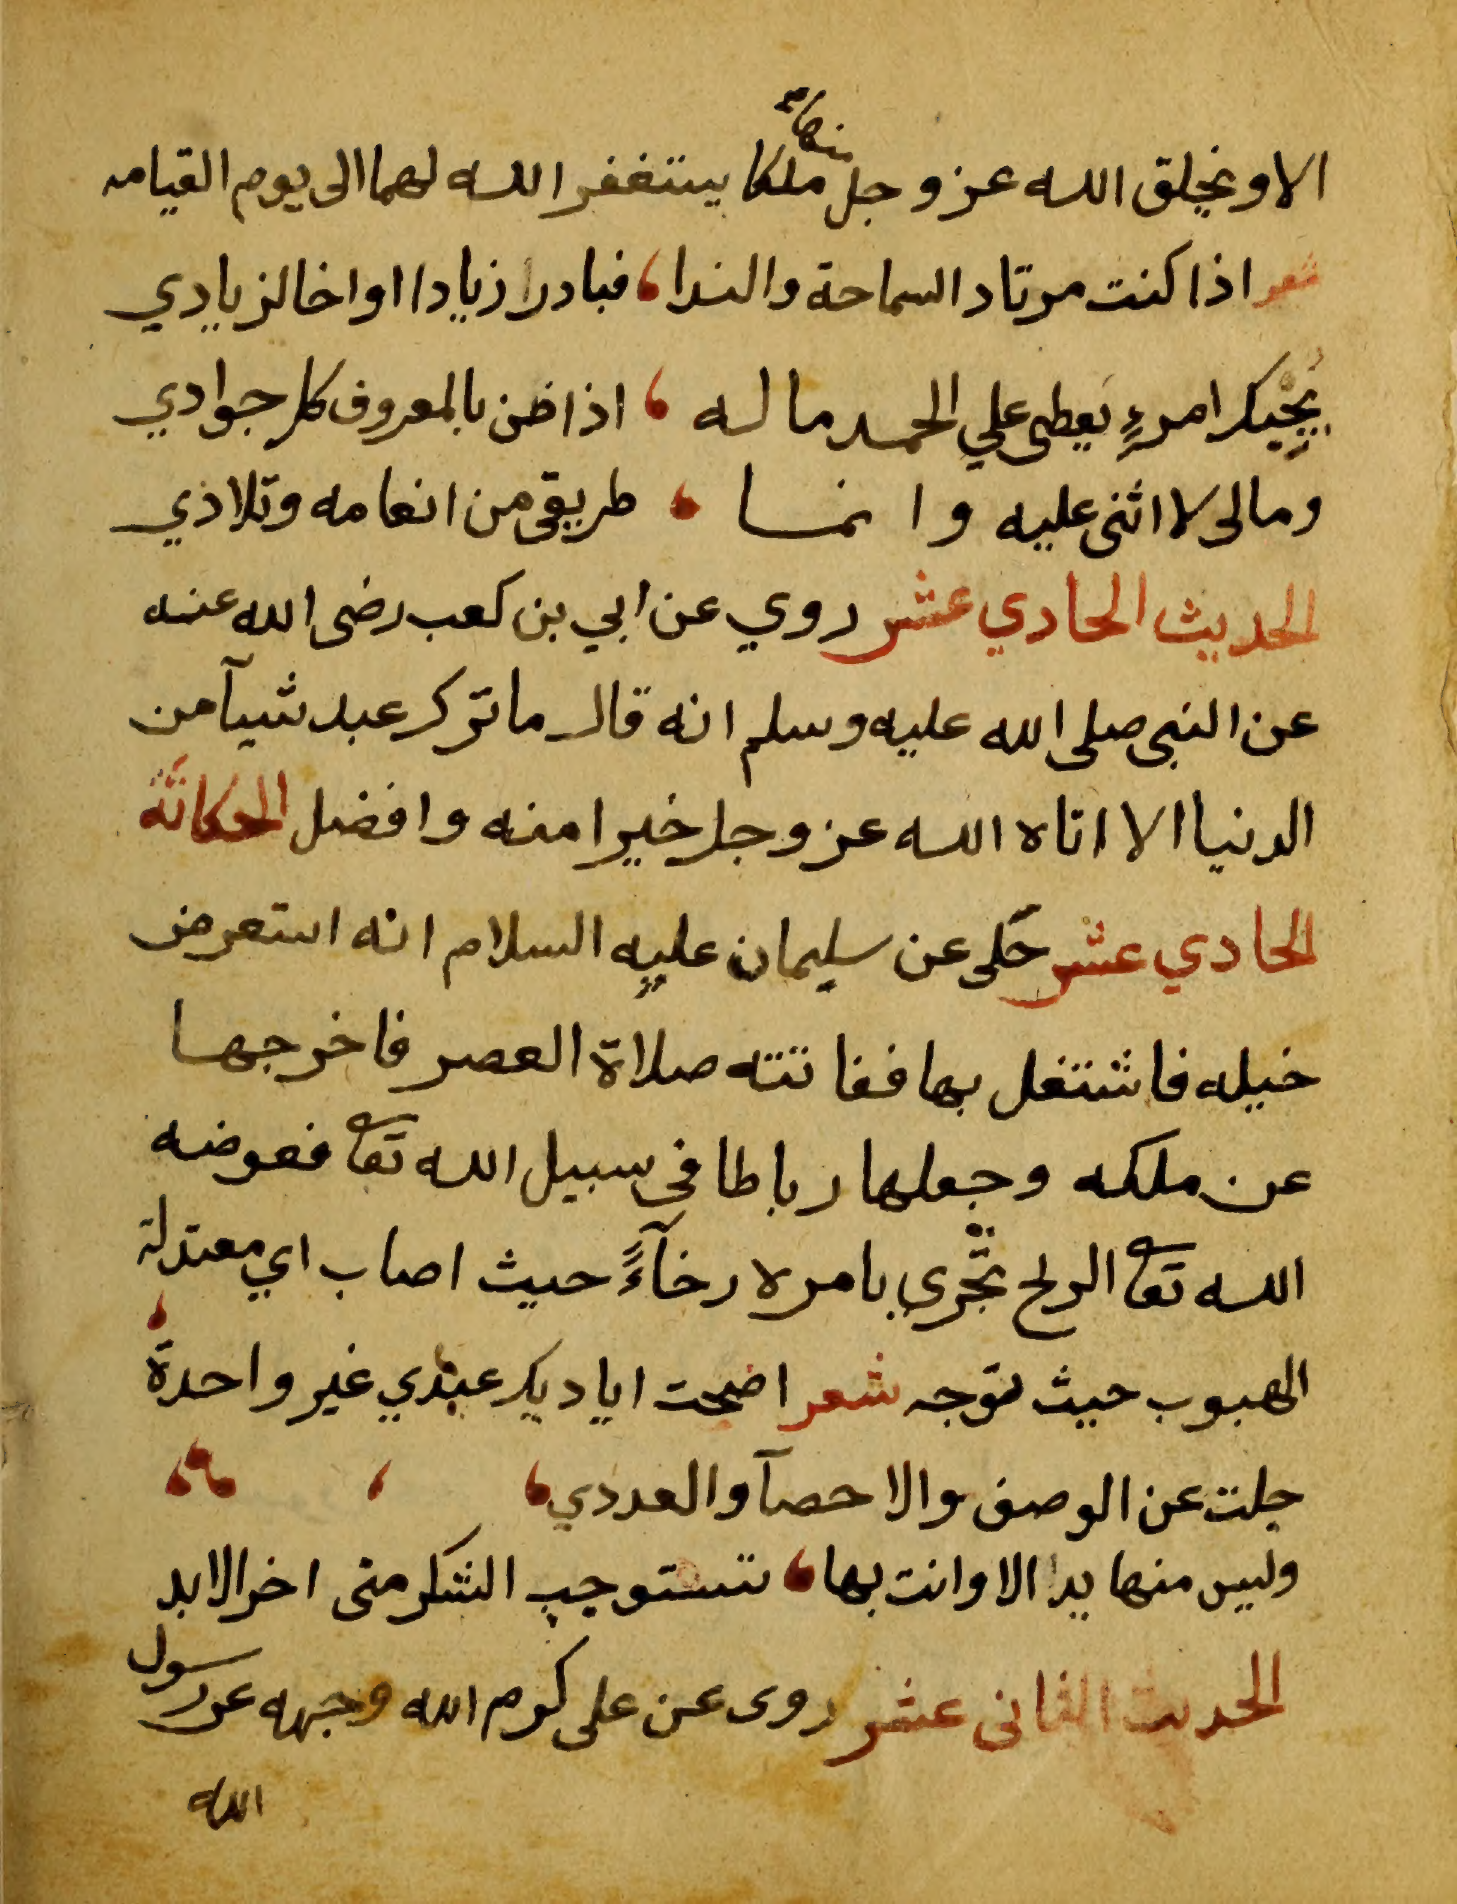 الا ويخلق الله عز وجل منها ملكا يستغفر الله لهما الى يوم القيامه
شعر اذا كنت مرتاد السماحة والندا، فبادر زيادا او اخا لزيادي
يجبك امرءٍ يعطى علي الحمد ماله ، اذا ضن بالمعروف كل جوادي
ومالى لا اثنى عليه وانما ، طريقى من انعامه وتلاذي
الحديث الحادي عشر روي عن ابي بن كعب رضى الله عنه
عن النبى صلى الله عليه وسلم انه قال ما ترك عبد شيآ من
الدنيا الا اتاه الله عز وجل خيرا منه وافضل الحكاية
الحادي عشر حكى عن سليمان عليه السلام انه استعرض
خيله فاشتغل بها ففاتته صلاة العصر فاخرجها
عن ملكه وجعلها رباطا فى سبيل الله تعا فعوضه
الله تعا الريح تجرى بامره رخآءً حيث اصاب اي معتدلة
الهبوب حيث توجه شعر اضحت اياديك عندي غير واحدة ،
جلت عن الوصف والاحصآ والعددي ،
وليس منها يدا الا وانت بها ، تستوجب الشكر منى اخر الابد
الحديث الثانى عشر روى عن على كرم الله وجهه عن رسول
الله